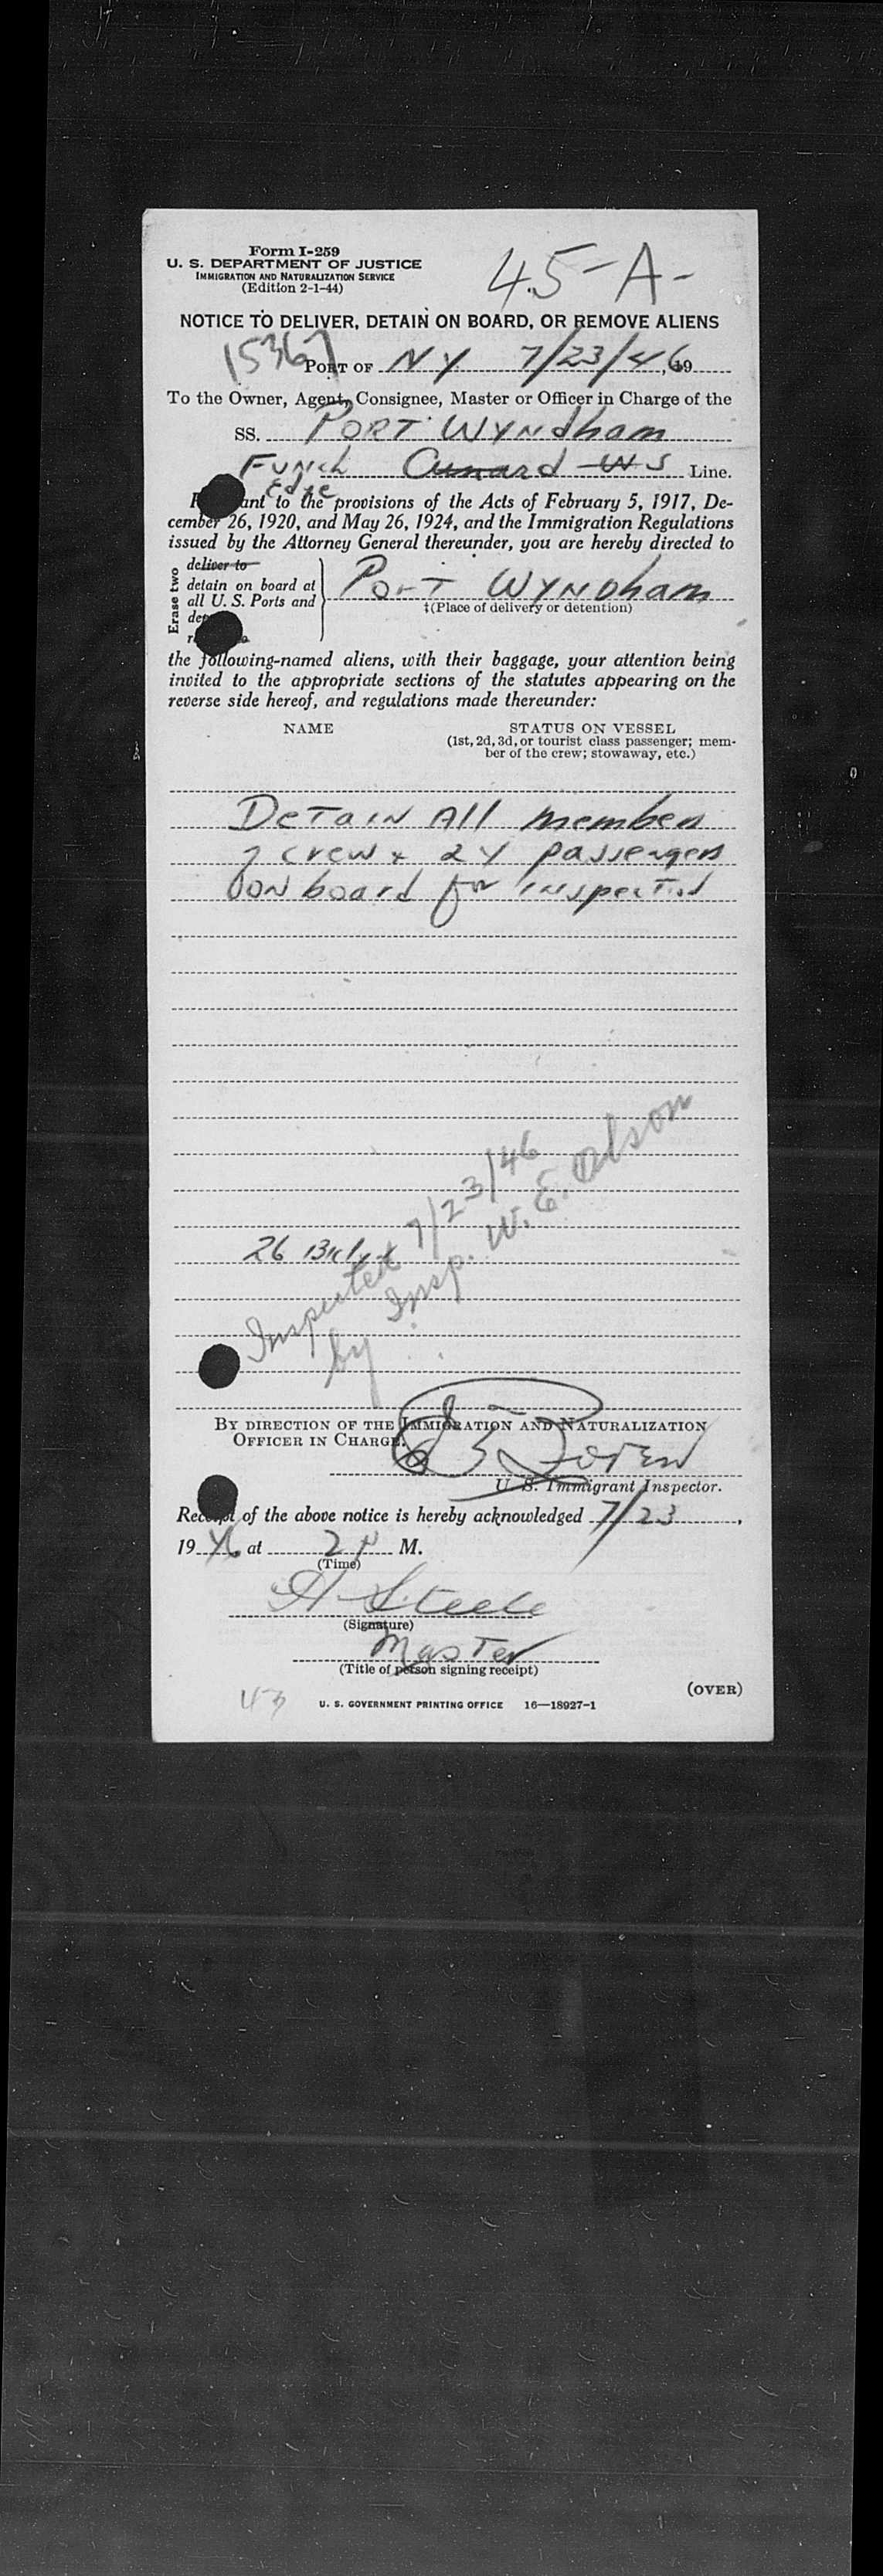 Form I-259
U. S. DEPARTMENT OF JUSTICE
IMMIGRATION AND NATURALIZATION SERVICE
(Edition 2-1-44)
45-A-
NOTICE TO DELIVER, DETAIN ON BOARD, OR REMOVE ALIENS
15367
PORT OF NY 7/23/46, 19
To the Owner, Agent, Consignee, Master or Officer in Charge of the
SS. PORT WYNDham
Funch Cunard WS Line.
Edye
to the provisions of the Acts of February 5, 1917, De-
cember 26, 1920, and May 26, 1924, and the Immigration Regulations
issued by the Attorney General thereunder, you are hereby directed to
Erase two
deliver to
detain on board at
all U. S. Ports and
PORT WYNDham
‡(Place of delivery or detention)
the following-named aliens, with their baggage, your attention being
invited to the appropriate sections of the statutes appearing on the
reverse side hereof, and regulations made thereunder:
NAME
STATUS ON VESSEL
(1st, 2d, 3d, or tourist class passenger; mem-
ber of the crew; stowaway, etc.)
DeTaiN All members
of crew + 24 passengers
ON board for inspection
26
Inspected 7/23/46
by Insp. W. E. Olson
BY DIRECTION OF THE IMMIGRATION AND NATURALIZATION
OFFICER IN CHARGE.
U. S. Immigrant Inspector.
Receipt of the above notice is hereby acknowledged 7/23,
19 46 at 2 P M.
(Time)
H Steele
(Signature)
Master
(Title of person signing receipt)
43
(OVER)
U. S. GOVERNMENT PRINTING OFFICE 16—18927-1